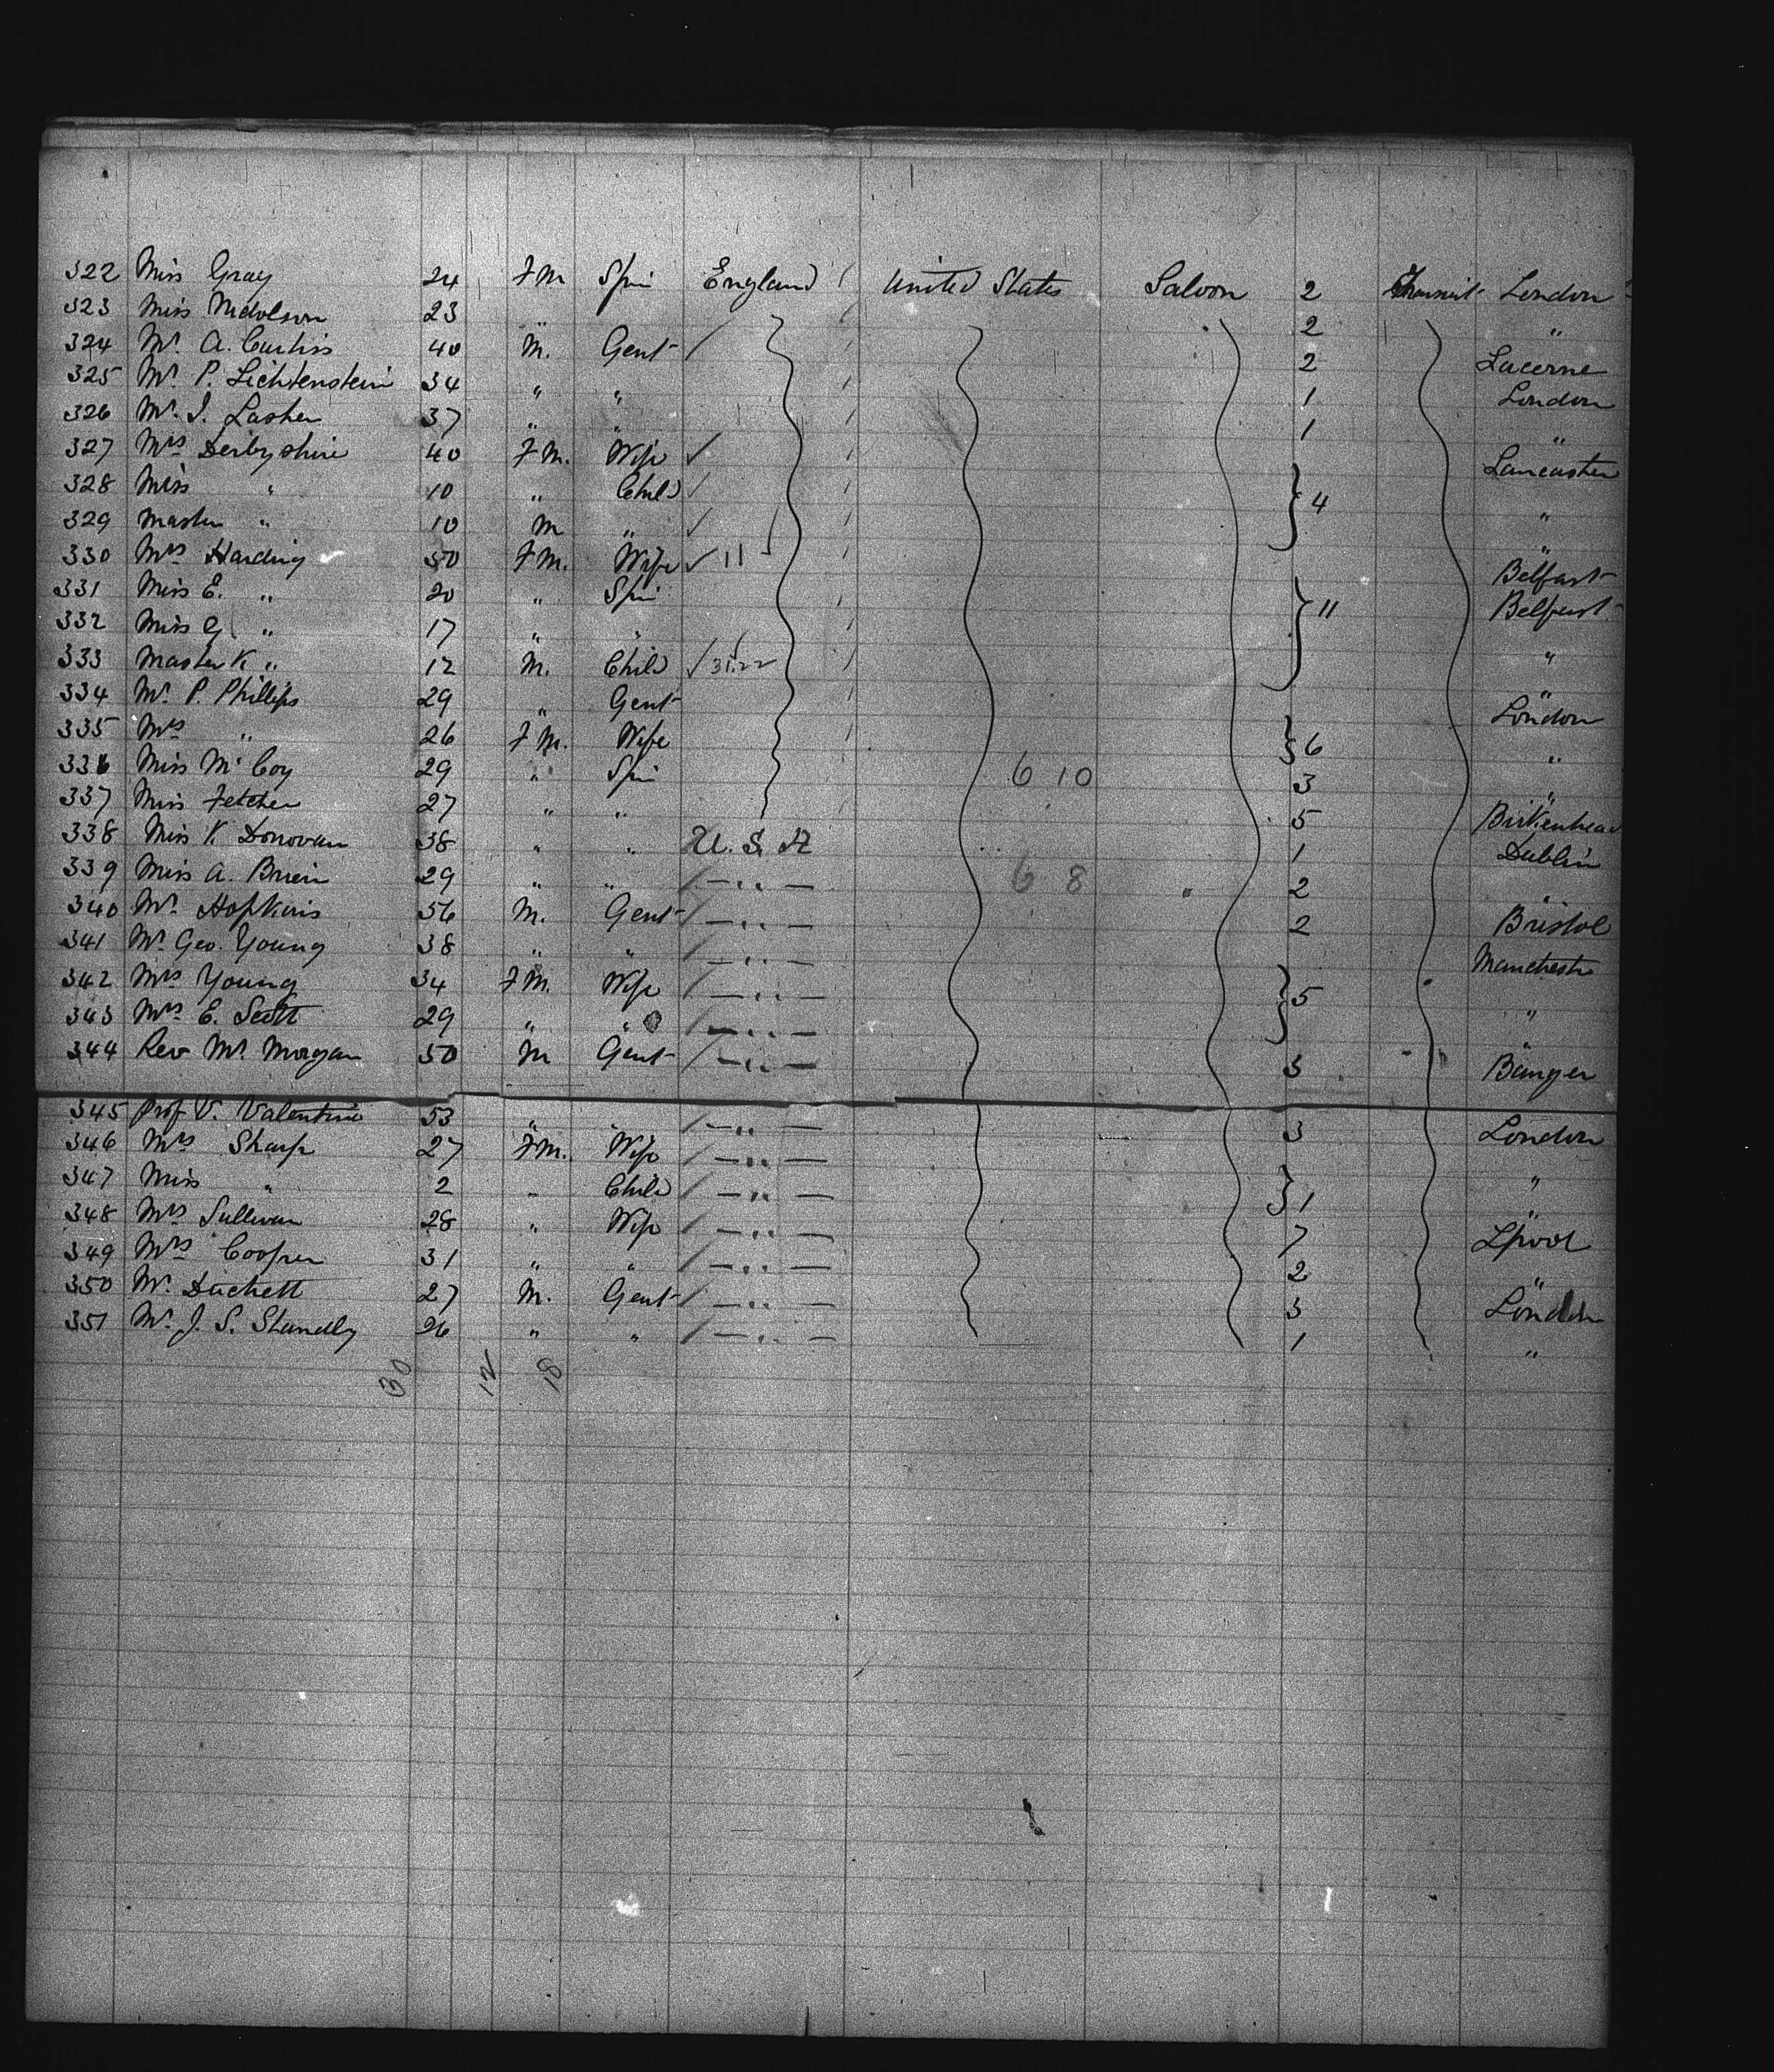 322 Miss Gray 24 Fm Spin England United States Saloon 2 Transit London
323 Miss Nicholson 23 " 2 "
324 Mr. A. Curtis 40 M. Gent 2 Lucerne
325 Mr. P. Lichtenstein 34 " " 1 London
326 Mr. I. Lasher 37 " " 1 "
327 Mrs Derbyshire 40 Fm. Wife Lancaster
328 Miss " 10 " Child } 4 "
329 Master " 10 M " "
330 Mrs Harding 50 Fm. Wife 11 Belfast
331 Miss E. " 20 " Spin } 11 Belfast
332 Miss G " 17 " " "
333 Master K " 12 M. Child "
334 Mr. P. Phillips 29 " Gent London
335 Mrs " 26 Fm. Wife } 6 "
336 Miss McCoy 29 " Spin 6 10 3 "
337 Miss Fetcher 27 " " 5 Birkenhead
338 Miss K Donovan 38 " " U. S. A 1 Dublin
339 Miss A. Brien 29 " " — " — 6 8 " 2 "
340 Mr. Hopkins 56 M. Gent — " — 2 Bristol
341 Mr. Geo. Young 38 " " — " — Manchester
342 Mrs Young 34 Fm. Wife — " — } 5 "
343 Mrs E. Scott 29 " " — " — "
344 Rev Mr. Morgan 50 M Gent — " — 3 Bangor
345 Prof V. Valentine 53 " " — " — 3 London
346 Mrs Sharp 27 Fm. Wife — " — "
347 Miss " 2 " Child — " — } 1 "
348 Mrs Sullivan 28 " Wife — " — 7 Lpool
349 Mrs Cooper 31 " " — " — 2 "
350 Mr. Duckett 27 M. Gent — " — 3 London
351 Mr. J. S. Standly 26 " " — " — 1 "
30 12 18